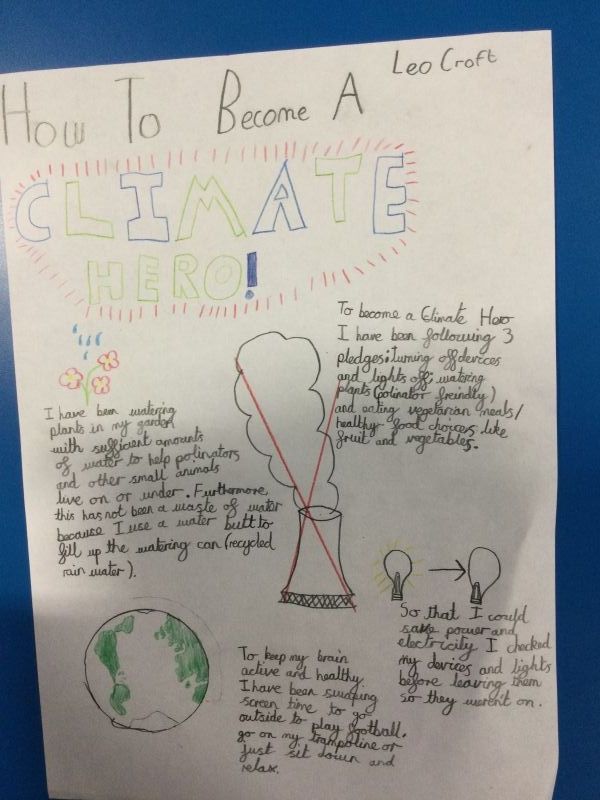 Leo Croft
How To Become A
CLIMATE
HERO!
To become a Climate Hero
I have been following 3
pledges: turning off devices
and lights off; watering
plants (polinator freindly)
and eating vegetarian meals/
healthy food choices like
fruit and vegetables.
I have been watering
plants in my garden
with sufficient amounts
of water to help polinators
and other small animals
live on or under. Furthermore,
this has not been a waste of water
because I use a water butt to
fill up the watering can (recycled
rain water).
So that I could
save power and
electricity I checked
my devices and lights
before leaving them
so they weren't on.
To keep my brain
active and healthy
I have been swaping
screen time to go
outside to play football,
go on my trampoline or
just sit down and
relax.